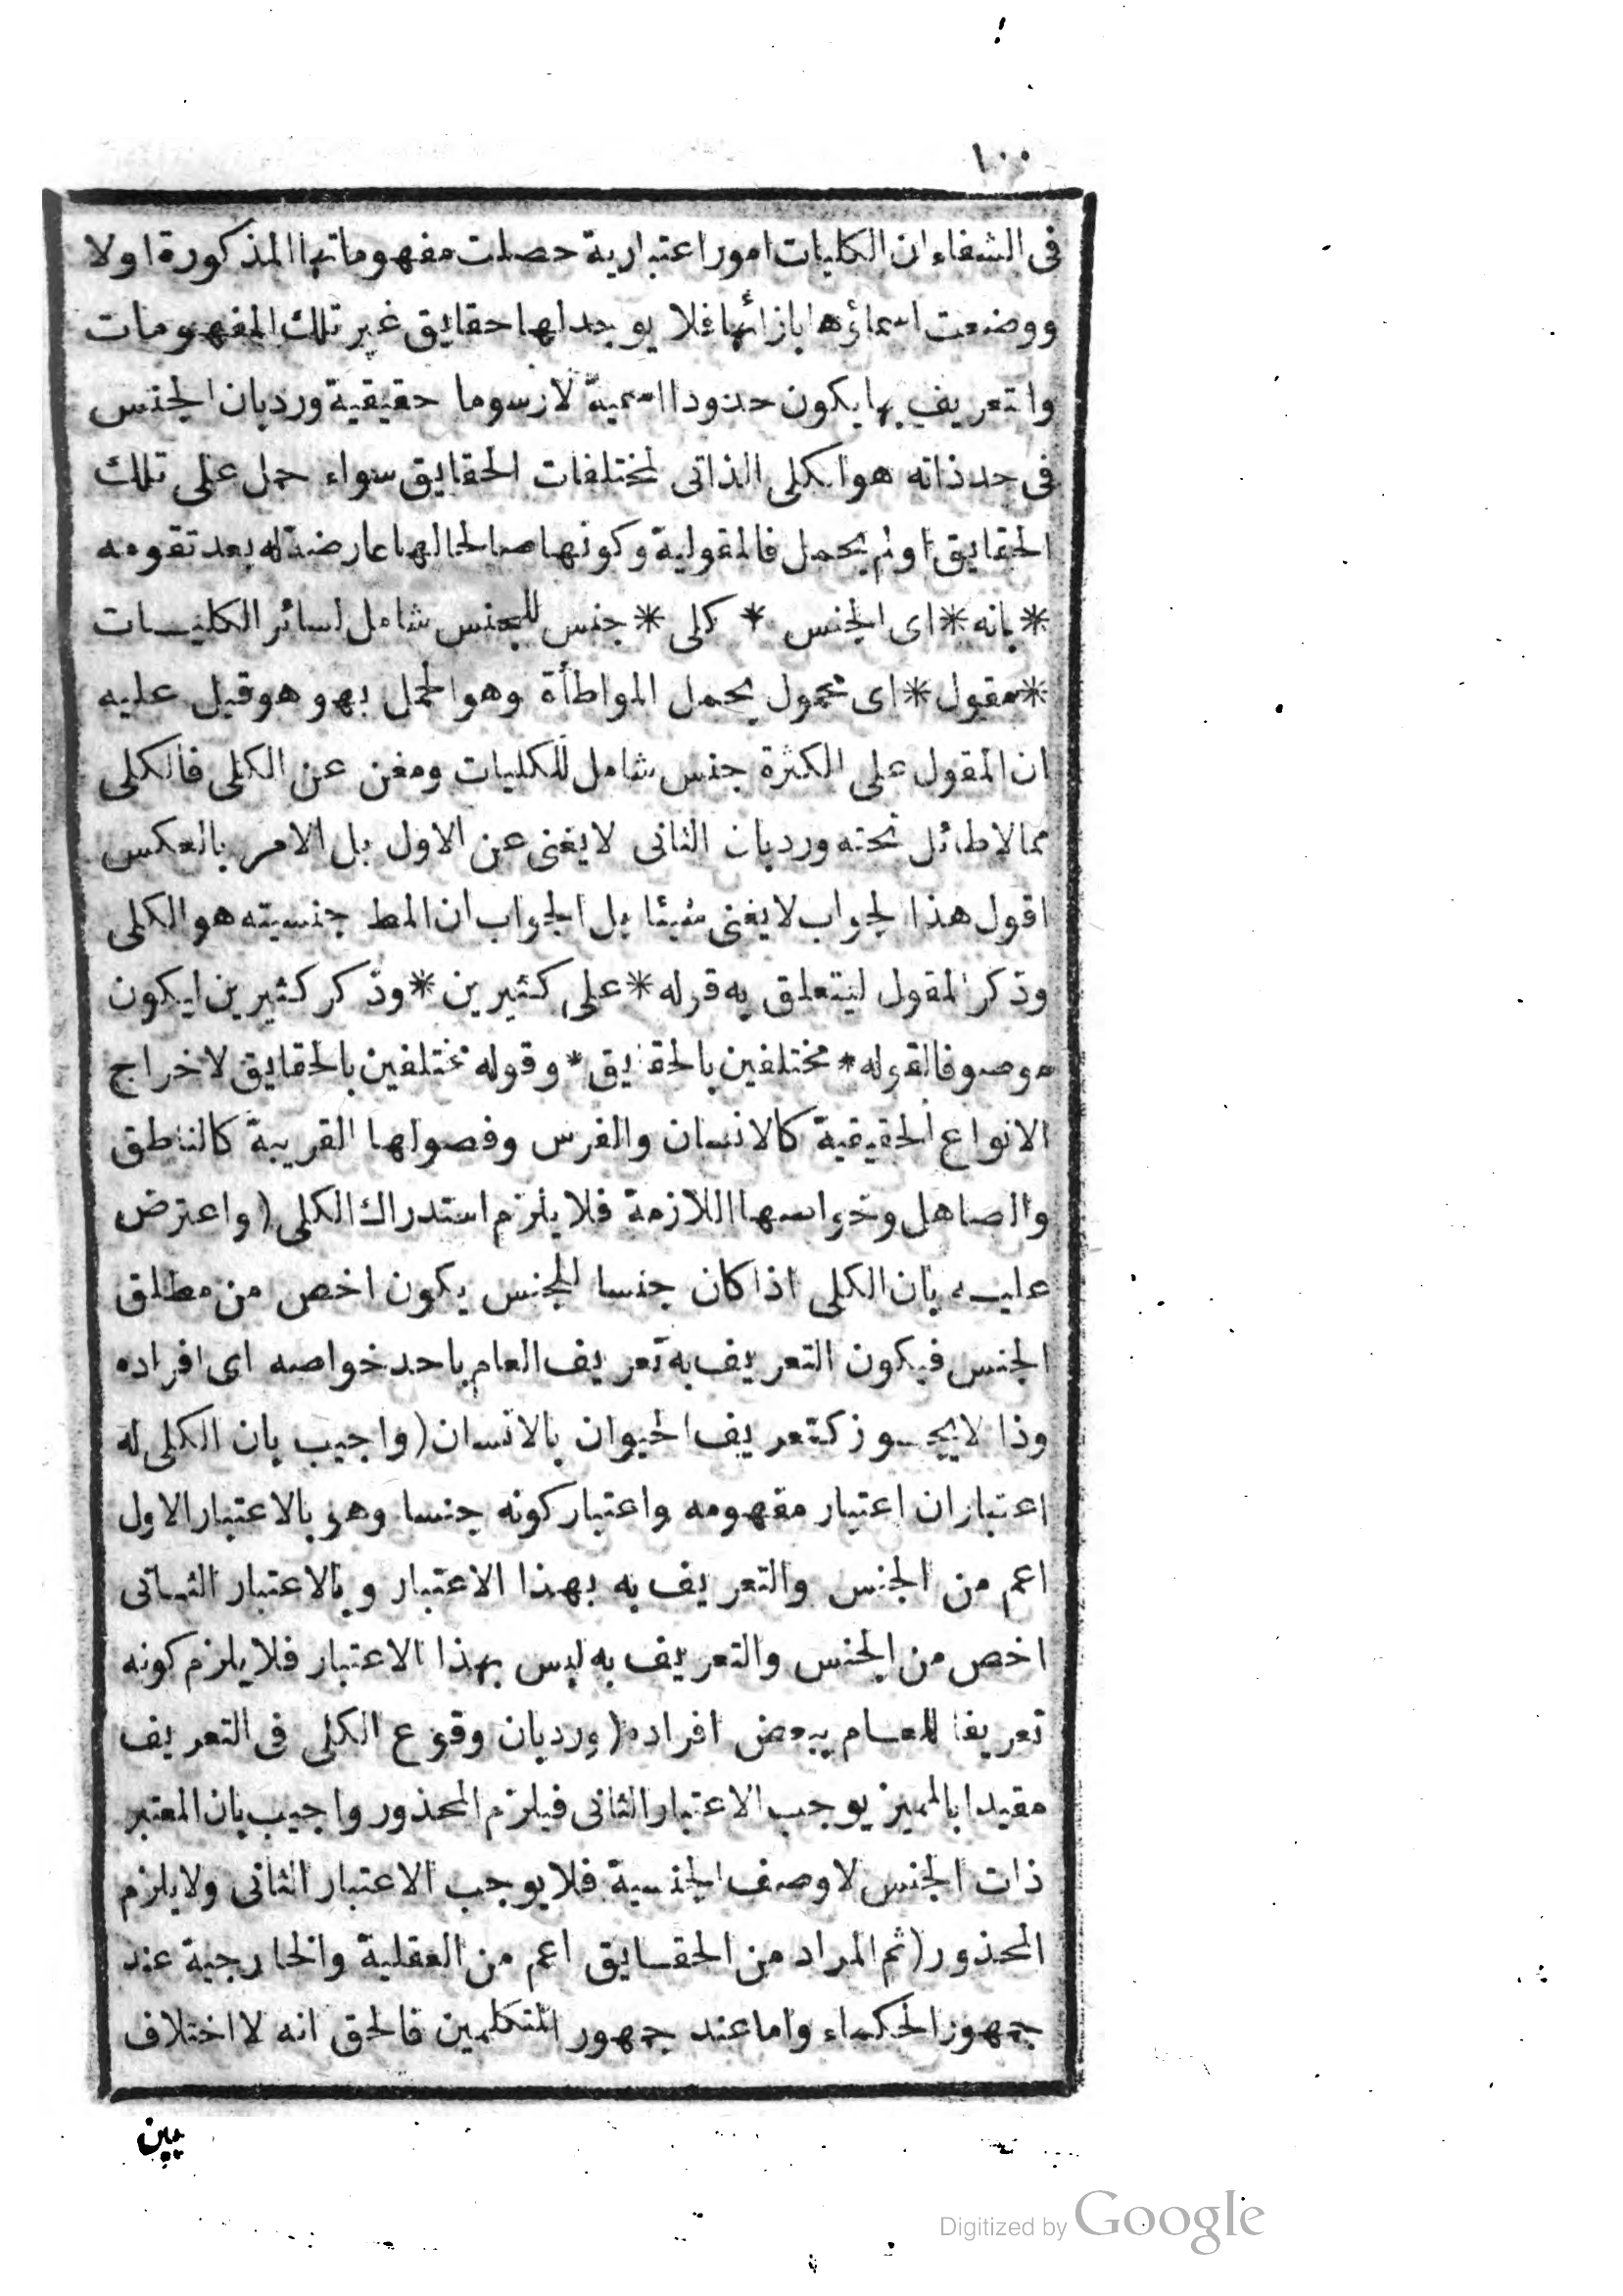 ١٠٠
فى الشفاء ان الكليات امور اعتبارية حصلت مفهوماتها المذكورة اولا
ووضعت اسماؤها بازائها فلا يوجد لها حقايق غير تلك المفهومات
والتعريف بها يكون حدودا اسمية لا رسوما حقيقية ورد بان الجنس
فى حد ذاته هو الكلى الذاتى لمختلفات الحقايق سواء حمل على تلك
الحقايق او لم يحمل فالمقولية وكونها صالحا لها عارضة له بعد تقومه
*بانه* اى الجنس * كلى * جنس للجنس شامل لسائر الكليات
*مقول* اى محمول بحمل المواطأة وهو الحمل بهو هو قيل عليه
ان المقول على الكثرة جنس شامل للكليات ومغن عن الكلى فالكلى
مما لا طائل تحته ورد بان الثانى لا يغنى عن الاول بل الامر بالعكس
اقول هذا الجواب لا يغنى شيئا بل الجواب ان المط جنسيته هو الكلى
وذكر المقول ليتعلق به قوله *على كثيرين* وذكر كثيرين ليكون
موصوفا لقوله *مختلفين بالحقايق* وقوله مختلفين بالحقايق لاخراج
الانواع الحقيقية كالانسان والفرس وفصولها القريبة كالناطق
والصاهل وخواصها اللازمة فلا يلزم استدراك الكلى (واعترض
عليه بان الكلى اذا كان جنسا للجنس يكون اخص من مطلق
الجنس فيكون التعريف به تعريف العام باحد خواصه اى افراده
وذا لا يجوز كتعريف الحيوان بالانسان (واجيب بان الكلى له
اعتباران اعتبار مفهومه واعتبار كونه جنسا وهو بالاعتبار الاول
اعم من الجنس والتعريف به بهذا الاعتبار وبالاعتبار الثانى
اخص من الجنس والتعريف به ليس بهذا الاعتبار فلا يلزم كونه
تعريفا للعام ببعض افراده (ورد بان وقوع الكلى فى التعريف
مقيدا بالمميز يوجب الاعتبار الثانى فيلزم المحذور واجيب بان المعتبر
ذات الجنس لا وصف الجنسية فلا يوجب الاعتبار الثانى ولا يلزم
المحذور (ثم المراد من الحقايق اعم من العقلية والخارجية عند
جمهور الحكماء واما عند جمهور المتكلمين فالحق انه لا اختلاف
بين
Digitized by Google